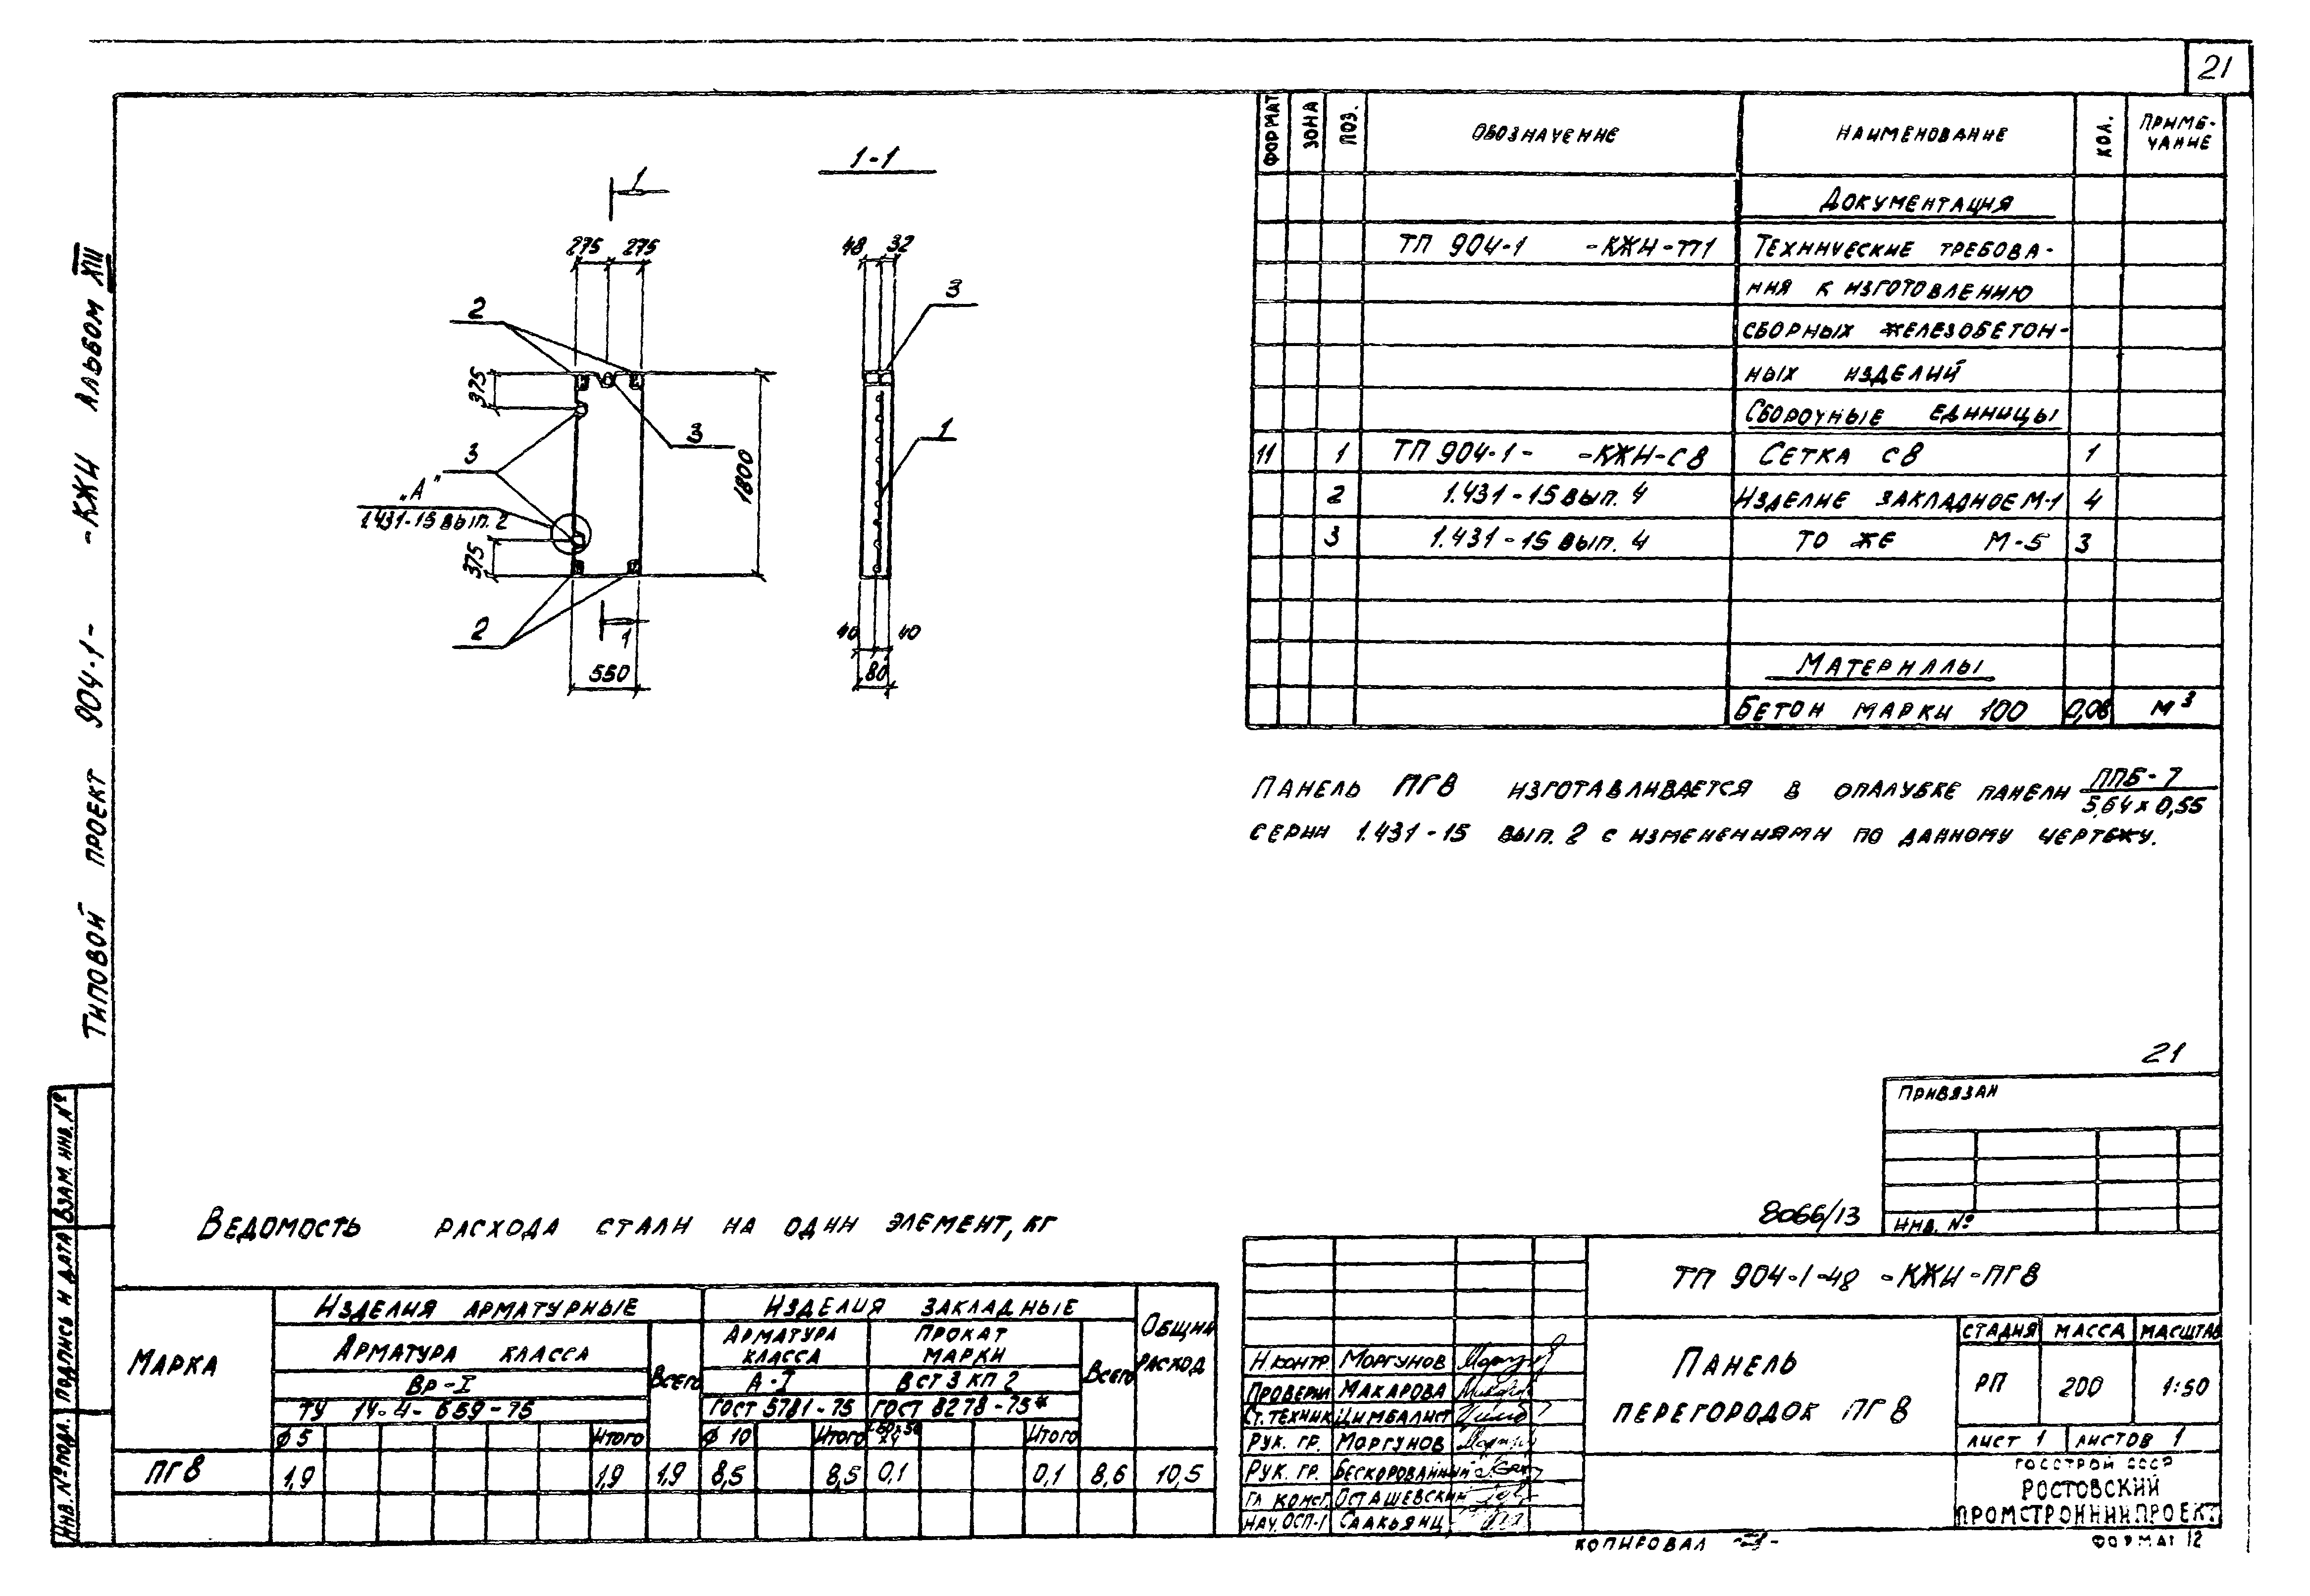 21
Типовой проект 904-1- -КЖИ Альбом XIII
1-1
1
275 275
48 32
2
3
375
3
3
1
„А"
1.431-15 вып. 2
1800
375
2
1
40 40
550
80
ФОРМАТ ЗОНА ПОЗ. ОБОЗНАЧЕНИЕ НАИМЕНОВАНИЕ КОЛ. ПРИМЕ-
ЧАНИЕ
Документация
ТП 904-1 -КЖИ-ТТ1 Технические требова-
ния к изготовлению
сборных железобетон-
ных изделий
Сборочные единицы
11 1 ТП 904-1- -КЖИ-С8 Сетка С8 1
2 1.431-15 вып. 4 Изделие закладное М-1 4
3 1.431-15 вып. 4 То же М-5 3
Материалы
Бетон марки 100 0,08 м³
Панель ПГ8 изготавливается в опалубке панели ППБ-7
5,64х0,55
серии 1.431-15 вып. 2 с изменениями по данному чертежу.
21
Привязан
8066/13
Инв. №
Ведомость расхода стали на один элемент, кг
Марка
Изделия арматурные Изделия закладные Общий
расход
Арматура класса Всего Арматура
класса Прокат
марки Всего
Вр-I А-I ВСт3кп2
ТУ 14-4-659-75 ГОСТ 5781-75 ГОСТ 8278-75*
φ5 Итого φ10 Итого Итого
ПГ8 1,9 1,9 1,9 8,5 8,5 0,1 0,1 8,6 10,5
ТП 904-1-48 -КЖИ-ПГ8
Н.контр. Моргунов
Проверил Макарова
Ст.техник Цимбалист
Рук. гр. Моргунов
Рук. гр. Бескорованный
Гл. конст. Осташевский
Нач.ОСП-1 Саакьянц
Панель
перегородок ПГ8
Стадия Масса Масштаб
РП 200 1:50
Лист 1 Листов 1
Госстрой СССР
Ростовский
Промстройниипроект
Копировал
Формат 12
Инв. № подл. Подпись и дата Взам. инв. №